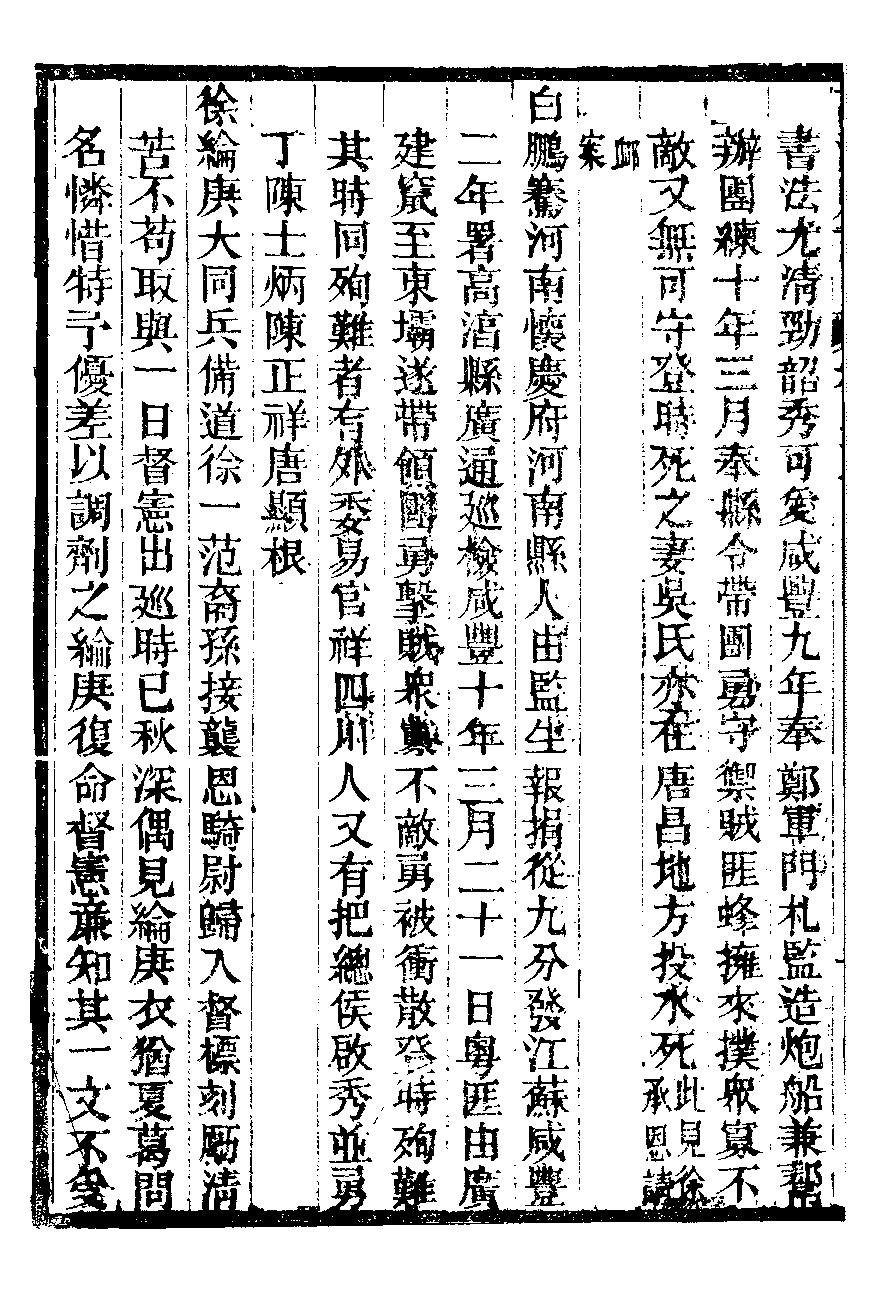 書法尤清勁韶秀可愛咸豐九年奉鄭軍門札監造炮船兼幫
辦團練十年三月奉縣令帶團勇守禦賊匪蜂擁來撲衆寡不
敵又無可守登時死之妻吳氏亦在唐昌地方投水死此見徐承恩請
卹案
白鵬騫河南懷慶府河南縣人由監生報捐從九分發江蘇咸豐
二年署高淳縣廣通廵檢咸豐十年三月二十一日粵匪由廣
建竄至東壩遂帶領團勇擊賊衆寡不敵勇被衝散登時殉難
其時同殉難者有外委易官祥四川人又有把總侯啟秀並勇
丁陳士炳陳正祥唐顯根
徐綸庚大同兵備道徐一范裔孫接襲恩騎尉歸入督標刻勵清
苦不苟取與一日督憲出廵時已秋深偶見綸庚衣猶夏葛問
名憐惜特予優差以調劑之綸庚復命督憲亷知其一文不